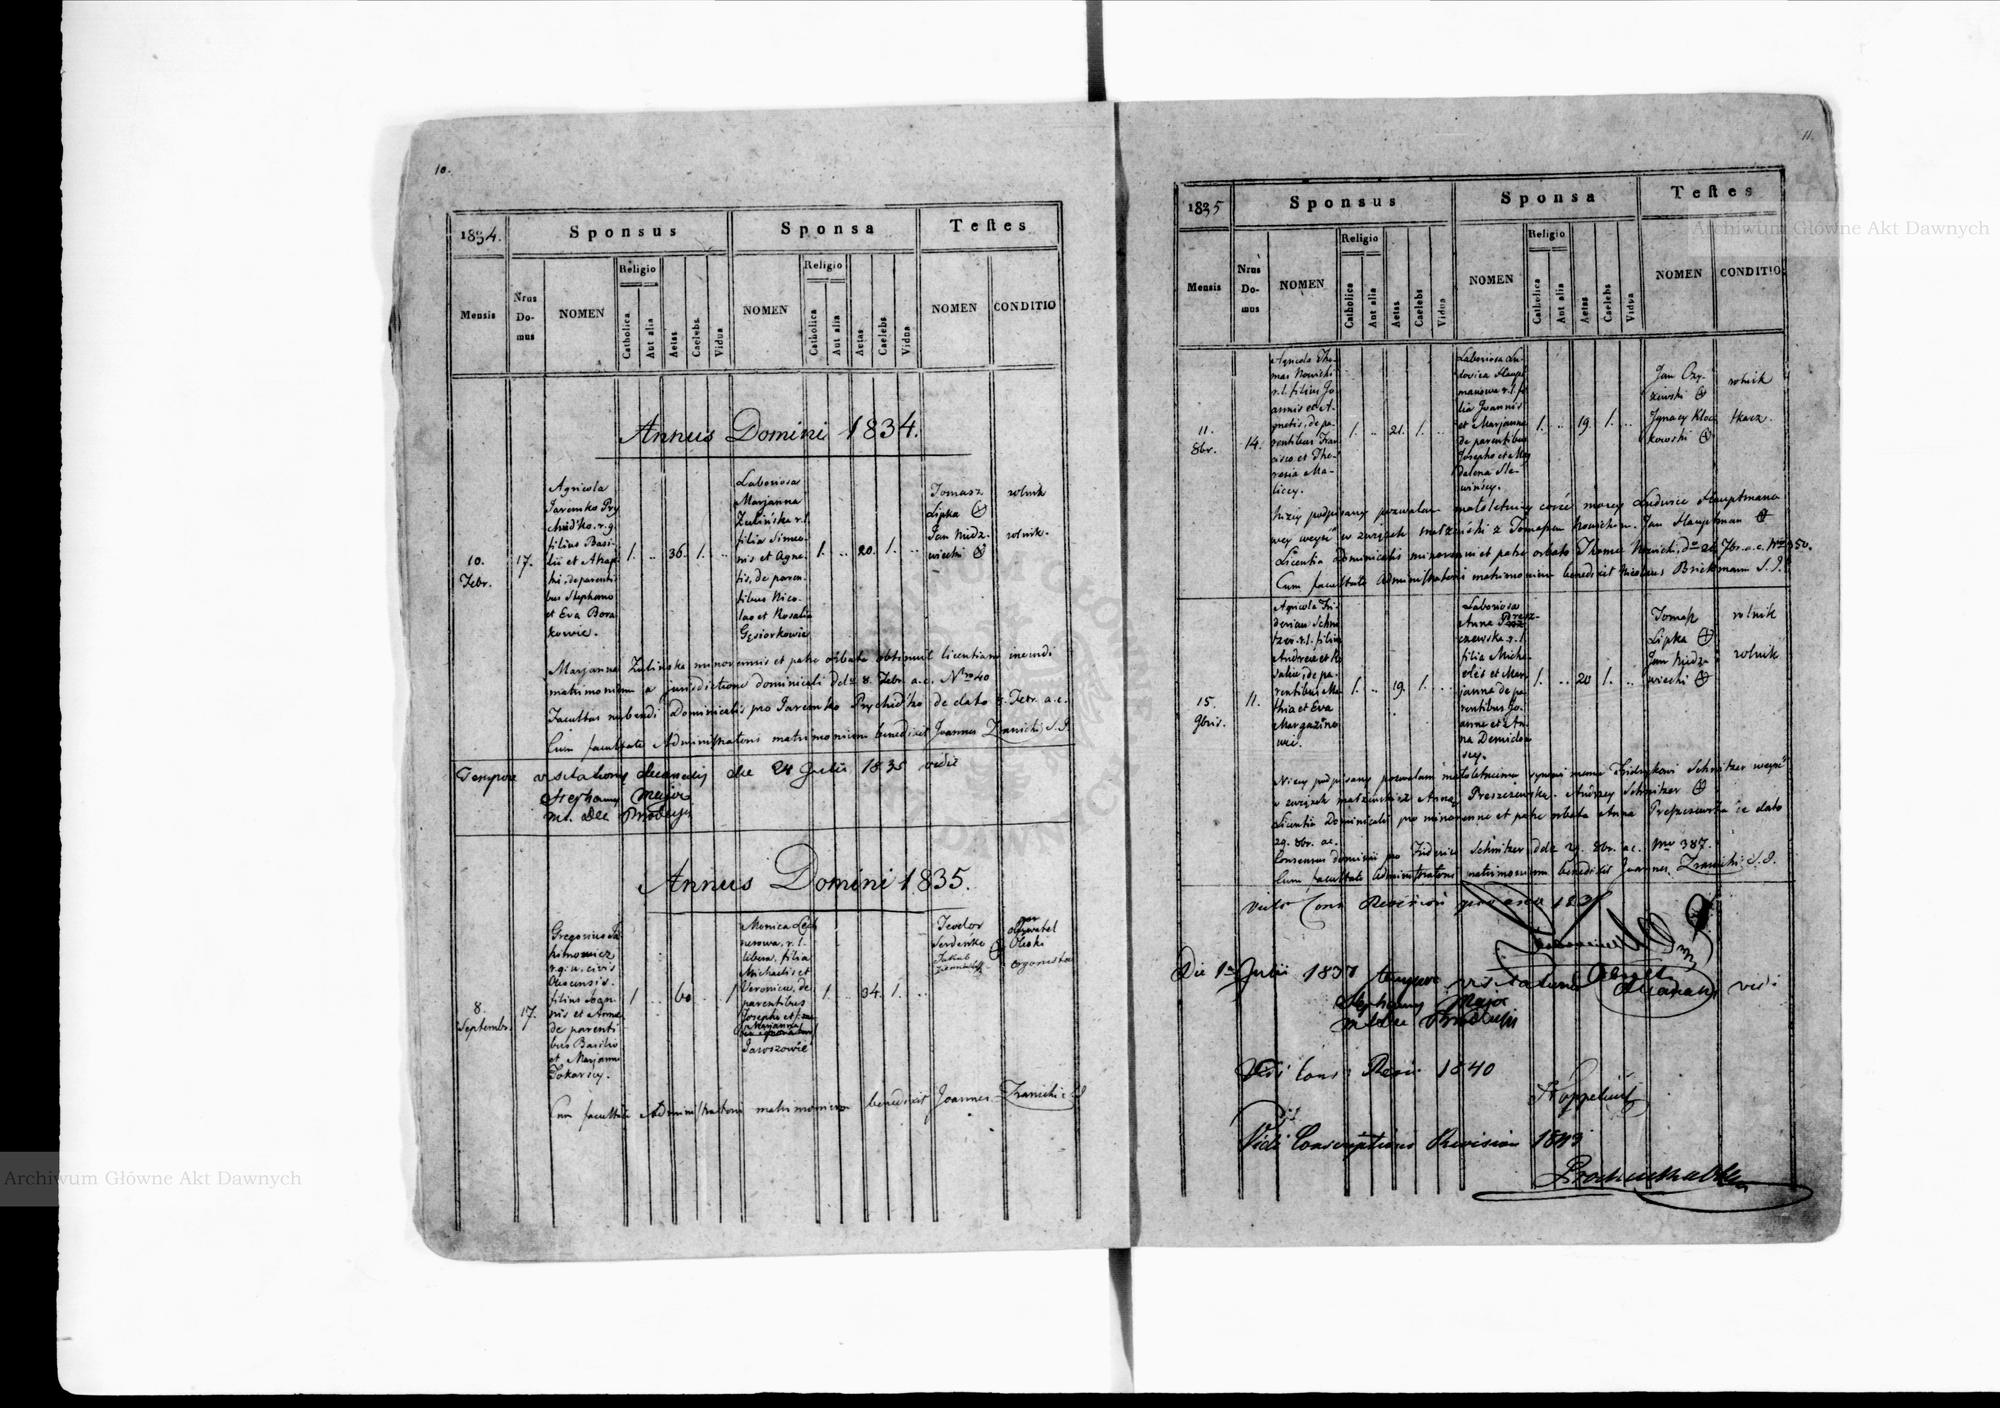 10.
1834.
Sponsus
Sponsa
Teſtes
Mensis
Nrus Domus
NOMEN
Religio
Catholica
Aut alia
Aetas
Caelebs
Vidua
NOMEN
Religio
Catholica
Aut alia
Aetas
Caelebs
Vidua
NOMEN
CONDITIO
Annus Domini 1834.
10.
Febr.
17.
Agricola
Jaremko Pry
chid'ko. r. g.
filius Basi-
lii et
de parenti
bus Stephano
et Eva Bora
kowie.
1.
..
36.
1.
..
Laboriosa
Marjanna
Zulińska r. l.
filia Simeo-
nis et Agne-
tis, de paren-
tibus Nico-
lao et Rosalia
Gęsiorkowie
1.
..
20.
1.
..
Tomasz
Lipka
Jan Nidz-
wiecki
rolnik
rolnik.
Marjanna Zulinska minorennis et patre orbata obtinuit licentiam ineundi
matrimonium a jurisdictione dominicali ddto 8. Febr. a. c. Nro 40
Facultas nubendi Dominicalis pro Jaremko Prychid'ko de dato 8. Febr. a. c.
Cum facultate Administratoris matrimonium benedixit Joannes Zranicki S. J.
Tempore visitationis decanalis die 28 Julii 1835 vidi
Stephanus Major
Annus Domini 1835.
8.
Septembr.
17.
Gregorius Ja
kimowicz
r. g. u. civis
Olescensis.
filius Joan-
nis et Anna
de parenti
bus Basilio
et Marjanna
Tokarscy.
1
..
60
..
1
Monica Lech
nerowa, r. l.
libera, filia
Michaelis et
Veronica, de
parentibus
Josepho et
Marjanna
Jaroszowie
1.
..
34.
1.
..
Teodor
Serdeńko
Jakub
obywatel
Oleski
organista
Cum facultate Administratoris matrimonium benedixit Joannes Zranicki S. J.
11.
1835
Sponsus
Sponsa
Teſtes
Mensis
Nrus Domus
NOMEN
Religio
Catholica
Aut alia
Aetas
Caelebs
Vidua
NOMEN
Religio
Catholica
Aut alia
Aetas
Caelebs
Vidua
NOMEN
CONDITIO
11.
8br.
14.
Agricola Tho-
mas Nowicki
r. l. filius Jo-
annis et A-
gnetis, de pa-
rentibus Fran
cisco et The-
resia Ma-
liccy.
1.
..
21.
1.
..
Laboriosa Lu-
dovica Haupt
manowa r. l. fi
lia Joannis
et Marjanna
de parentibus
Josepho et Mag
dalena Sle-
wińscy.
1.
..
19.
1.
..
Jan Ozy-
Ignacy Kloc
kowski
rolnik
tkacz.
Niżej podpisany pozwalam małoletniej córce mojej Ludwice Hauptmano
wej wejść w związek małżeński z Tomaszem Nowickim. Jan Hauptman
Licentia Dominicalis minorenni et patre orbato Thomae Nowicki, do 26. 7br. a. c. Nro 350.
Cum facultate Administratoris matrimonium benedixit Nicolaus Brickmann S. J.
15.
9bris.
11.
Agricola Fri-
dericus Schni
tzer. r. l. filius
Andreae et Ro
salia, de pa-
rentibus Ma-
thia et Eva
1.
..
19.
1.
..
Laboriosa
Anna Presz-
czewska. r. l.
filia Micha-
elis et Mar-
janna de pa-
rentibus Jo-
anne et An-
na Demidow
scy.
1.
..
20
1.
..
Tomasz
Lipka
Jan Nidz-
wiecki
rolnik
rolnik
Niżej podpisany pozwalam małoletniemu synowi memu Fridrykowi Schnitzer wejść
w związek małżeński z Anną Preszczewską. Andrzey Schnitzer
Licentia Dominicalis pro minorenne et patre orbata Anna Preszczewska de dato
29. 8br. a. c.
Consensus dominii pro Friderico Schnitzer ddto 29. 8br. a. c. Nro 387.
Cum facultate Administratoris matrimonium benedixit Joannes Zranicki S. J.
Die 1ma Julii 1837 tempore visitationis Decanalis vidi
Stephanus Major
Vidi Cons: Revi: 1840
Vidi Conscriptions Revision 1843
Archiwum Główne Akt Dawnych
Archiwum Główne Akt Dawnych
ARCHIWUM GŁÓWNE AKT DAWNYCH